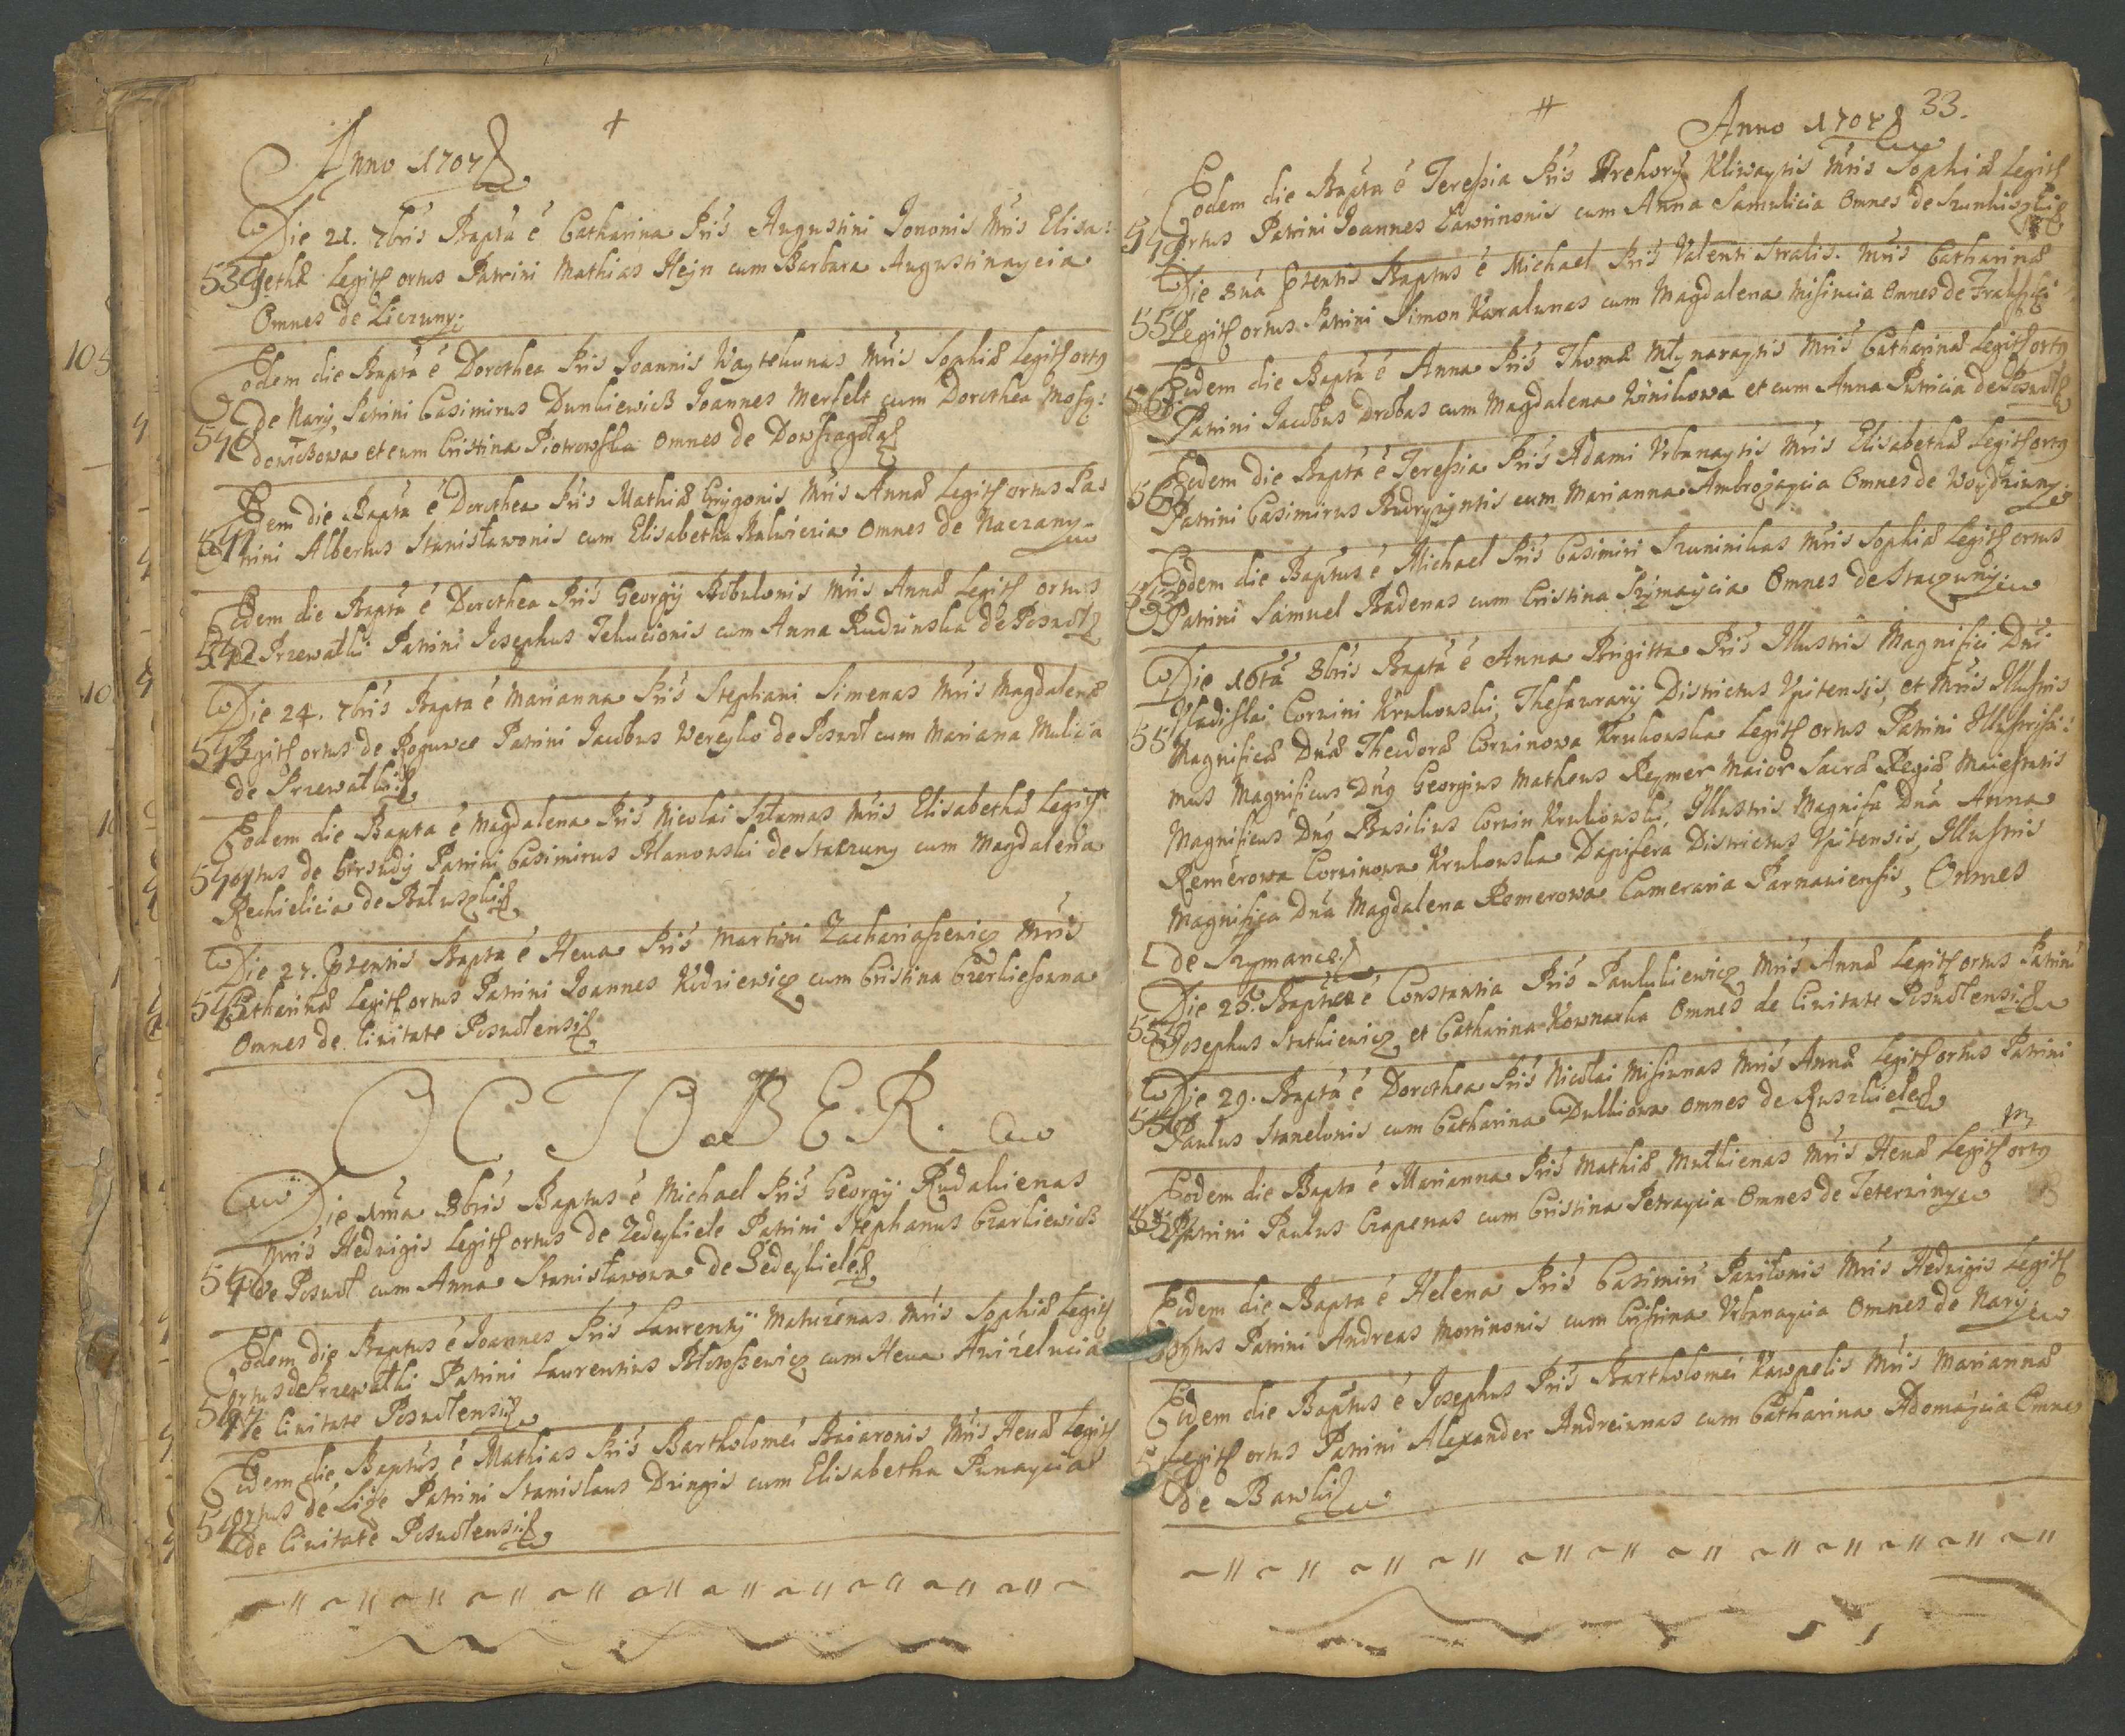 Anno 1707
Die 21. 7bris Bapta è Catharina Pris Augustini Jononis Mris Elisa:
539 bethæ Legit ortus Patrini Mathias Hejn cum Barbara Augustinaycia
Omnes de Liczuny
Eodem die Bapta è Dorothea Pris Joannis Waytekunas Mris Sophiæ Legit ortg
de Nary, Patrini Casimirus Dunkiewicz Joannes Merfelt cum Dorothea Mosg:
540 dowiczowa et cum Cristina Piotrowska Omnes de
Eodem die Bapta è Dorothea Pris Mathiæ Grygonis Mris Annæ Legit ortus Pa:
541 trini Albertus Stanisławonis cum Elisabetha Kalwiczia Omnes de Naczany
Eodem die Bapta è Dorothea Pris Georgij Bobulonis Mris Annæ Legit ortus
542 de Przewałki Patrini Josephus Tekucionis cum Anna Rudzinska de Poswol
Die 24. 7bris Bapta è Marianna Pris Stephani Simenas Mris Magdalenæ
543 Legit ortus de Roguwce Patrini Jacobus Wereyko de Poswol cum Mariana Mulicia
de Przewałki
Eodem die Bapta è Magdalena Pris Nicolai Szlamas Mris Elisabethæ Legit
544 ortus de Patrini Casimirus Klanowski de Staczuny cum Magdalena
Rekielicia de
Die 27. Pntentis Bapta è Heua Pris Martini Zachariaszewicz Mris
545 Catharinæ Legit ortus Patrini Joannes Kudziewicz cum Cristina
Omnes de Ciuitate Poswolensi
OCTOBER.
Die 1ma 8bris Baptus è Michael Pris Georgij Rudakienas
Mris Heduigis Legit ortus de Zedeykiele Patrini Stephanus Czarkiewicz
546 de Poswol cum Anna Stanisławowna de Zedeykiele
Eodem die Baptus è Joannes Pris Laurentij Matuzenas Mris Sophiæ Legit
ortus de Przewałki Patrini Laurentius cum Heua Awizelucia
547 de Ciuitate Poswolensi
Eodem die Baptus è Mathias Pris Bartholomei Baiaronis Mris Heuæ Legit
548 ortus de Patrini Stanislaus Dringis cum Elisabetha Punaycia
de Ciuitate Poswolensi
33.
Anno 1707
Eodem die Bapta è Teressia Pris Hrehory Kliwaytis Mris Sophiæ Legit
549 ortus Patrini Joannes Lawrinonis cum Anna Samulicia Omnes de
Die 8ua Pntentis Baptus è Michael Pris Valenti Stralis. Mris Catharinæ
550 Legit ortus Patrini Simon Karalunas cum Magdalena Misiucia Omnes de
Eodem die Bapta è Anna Pris Thomæ Młynaraytis Mris Catharinæ Legit ortg
Patrini Jacobus Drobas cum Magdalena Winikowa et cum Anna Putricia de Poswol
Eodem die Bapta è Teressia Pris Adami Vrbanaytis Mris Elisabethæ Legit ortg
Patrini Casimirus cum Marianna Ambrozaycia Omnes de Woydziuny
Eodem die Baptus è Michael Pris Casimiri Szuminikas Mris Sophiæ Legit ortus
Patrini Samuel Badenas cum Cristina Szymaycia Omnes de Staczuny
Die 16ta 8bris Bapta è Anna Brigitta Pris Illustris Magnifici Dni
Vladislai Coruini Krukowski, Thesaurarij Districtus Vpitensis, et Mris Illustris
55 Magnificæ Dnæ Theodoræ Coruinowa Krukowska Legit ortus Patrini Illustrissi:
mus Magnificus Dng Georgius Matheus Reymer Maior Sacræ Regiæ Maiestatis
Magnificus Dng Basilius Coruin Krukowski, Illustris Magnifa Dna Anna
Remerowa Coruinowa Krukowska Dapifera Districtus Vpitensis, Illustris
Magnifica Dna Magdalena Remerowa Cameraria Parnauiensis, Omnes
de Szymance
Die 25. Bapta è Constantia Pris Paulukiewicz Mris Annæ Legit ortus Patrini
Josephus Statkiewicz et Catharina Kownacka Omnes de Ciuitate Poswolensi
Die 29. Bapta è Dorothea Pris Nicolai Misiunas Mris Annæ Legit ortus Patrini
Paulus Stanelonis cum Catharina Dulkiowa Omnes de Ruszkiele
Eodem die Bapta è Marianna Pris Mathiæ Mutkienas Mris Heuæ Legit ortg
Patrini Paulus Czapenas cum Cristina Petraycia Omnes de Teterwiny
Eodem die Bapta è Helena Pris Casimiri Parilonis Mris Heduigis Legit
ortus Patrini Andreas Morinonis cum Cristina Vrbanaycia Omnes de Nary
Eodem die Baptus è Josephus Pris Bartholomei Kawpelis Mris Mariannæ
5 Legit ortus Patrini Alexander Andreiunas cum Catharina Adomaycia Omnes
de Barwki